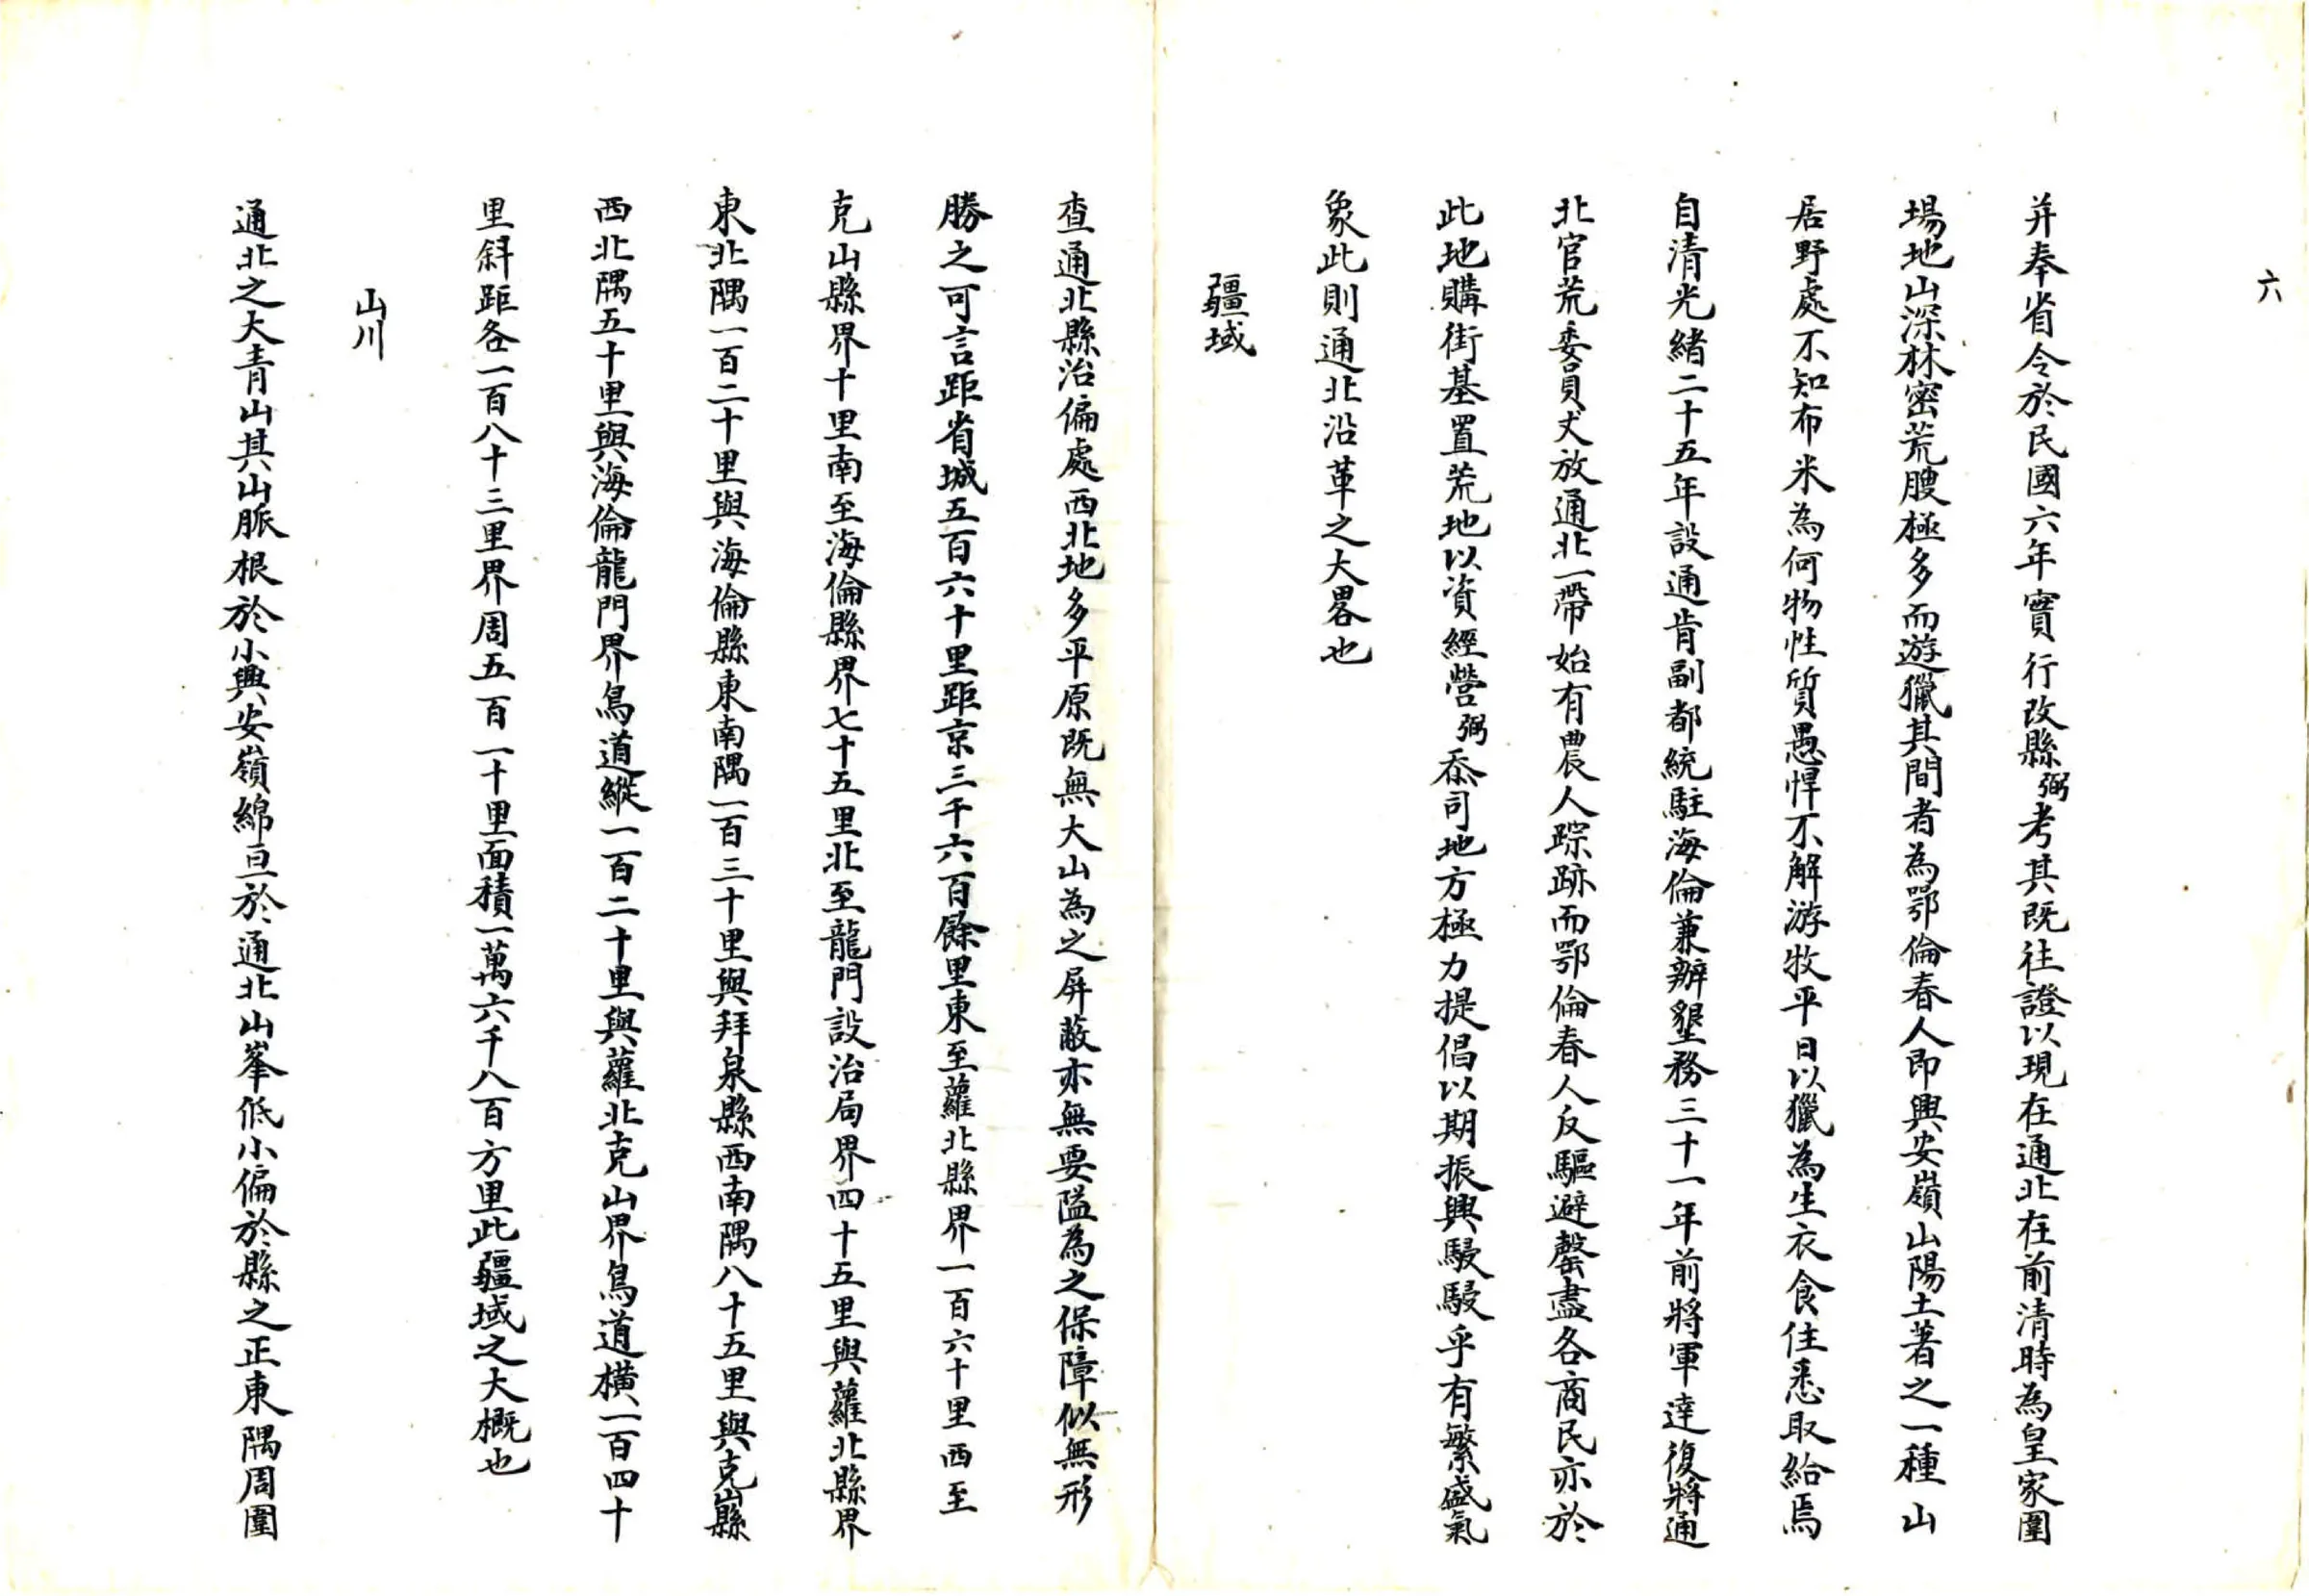 六
并奉省令於民國六年實行改縣弼考其既往證以現在通北在前清時為皇家圍
場地山深林密荒膄極多而遊獵其間者為鄂倫春人即興安嶺山陽土著之一種山
居野處不知布米為何物性質愚悍不解游牧平日以獵為生衣食住悉取給焉
自清光緒二十五年設通肯副都統駐海倫兼辦墾務三十一年前將軍達復將通
北官荒委員丈放通北一帶始有農人踪跡而鄂倫春人反驅避罄盡各商民亦於
此地購街基置荒地以資經營弼忝司地方極力提倡以期振興駸駸乎有繁盛氣
象此則通北沿革之大畧也
疆域
查通北縣治偏處西北地多平原既無大山為之屏蔽亦無要隘為之保障似無形
勝之可言距省城五百六十里距京三千六百餘里東至蘿北縣界一百六十里西至
克山縣界十里南至海倫縣界七十五里北至龍門設治局界四十五里與蘿北縣界
東北隅一百二十里與海倫縣東南隅一百三十里與拜泉縣西南隅八十五里與克山縣
西北隅五十里與海倫龍門界鳥道縱一百二十里與蘿北克山界鳥道橫一百四十
里斜距各一百八十三里界周五百一十里面積一萬六千八百方里此疆域之大概也
山川
通北之大青山其山脈根於小興安嶺綿亘於通北山峯低小偏於縣之正東隅周圍